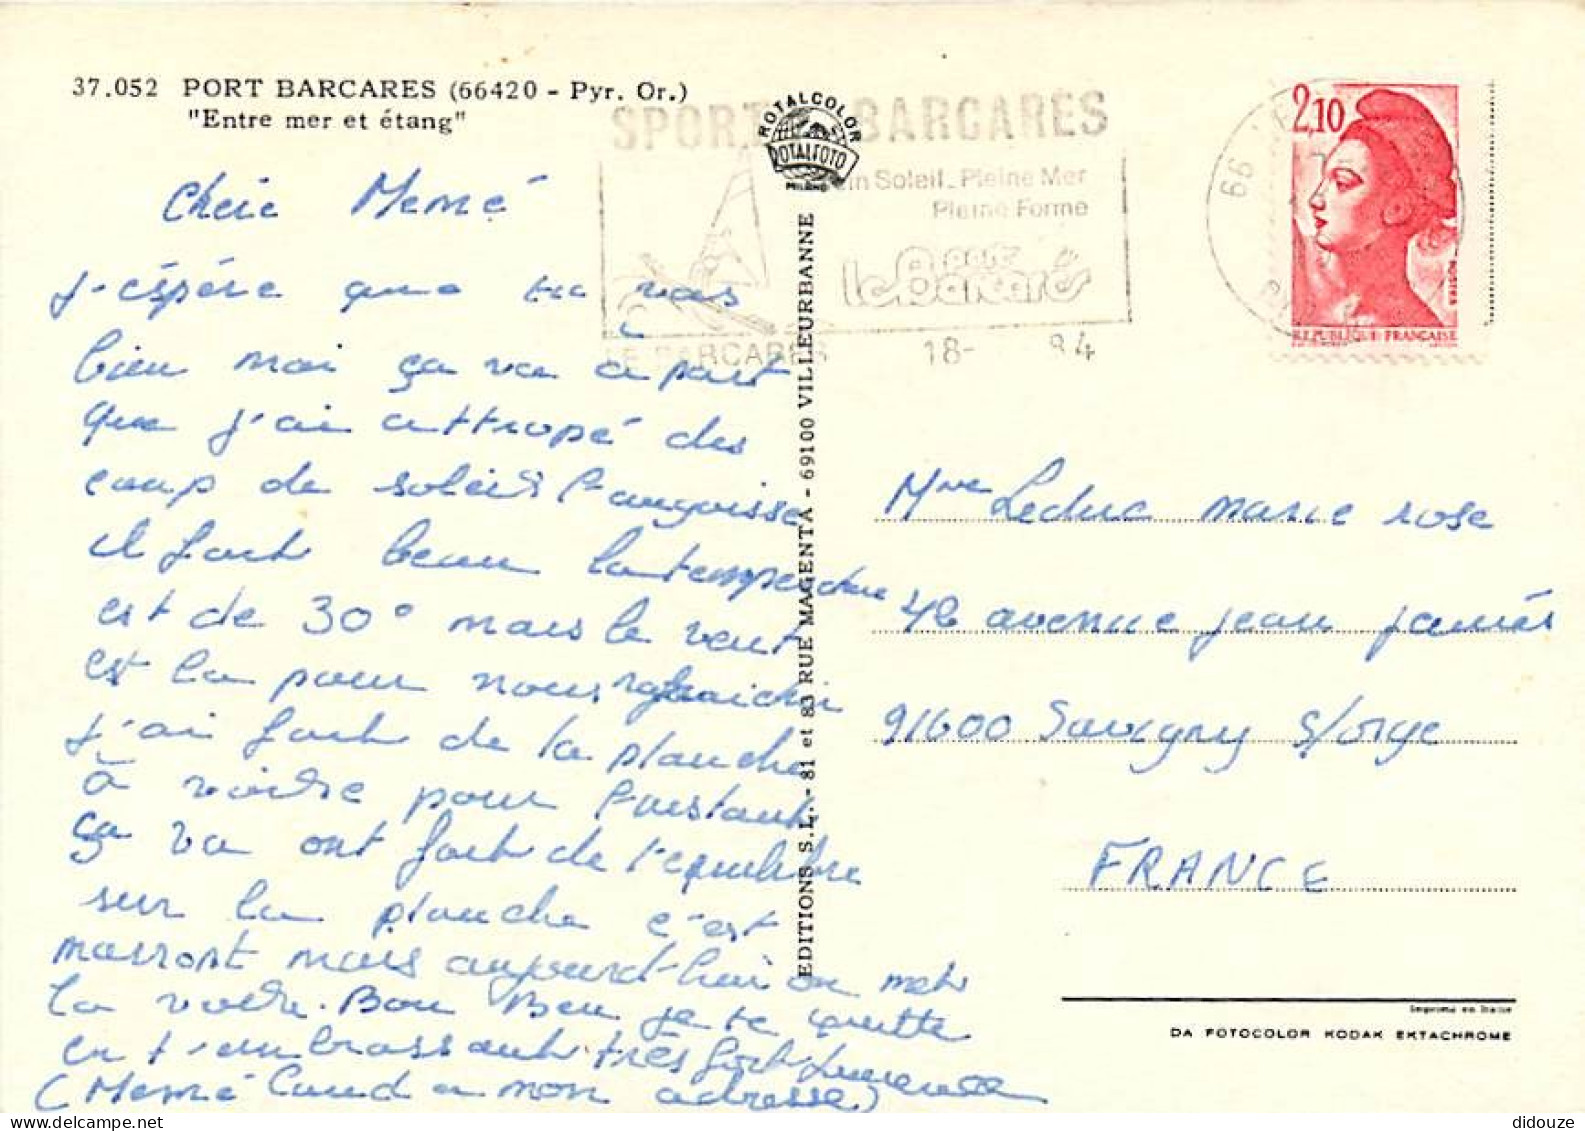 37.052 PORT BARCARES (66420 - Pyr. Or.)
"Entre mer et étang"
ROTALCOLOR
ROTALFOTO
MILANO
SPORT BARCARES
in Soleil - Pleine Mer
Pleine Forme
le port Barcarès
LE BARCARES 18- 84
66
2,10
POSTES
REPUBLIQUE FRANÇAISE
chérie Memé
j'éspére que tu vas
bien moi ça va a part
que j'ai attropé des
coup de soleil
il fait beau la temperature
est de 30° mais le vent
est la pour nous rafraichir
j'ai fait de la planche
à voile pour l'instant
ça va ont fait de l'equilibre
sur la planche c'est
marront mais aujourd'hui on met
la voile. Bon Ben je te quitte
en t'embrassant très fort Laurence
(Memé mon adresse)
EDITIONS S.L. - 81 et 83 RUE MAGENTA - 69100 VILLEURBANNE
Mme Leduc marie rose
42 avenue jean jaurés
91600 Savigny s/orge
FRANCE
Imprimé en Italie
DA FOTOCOLOR KODAK EKTACHROME
didouze